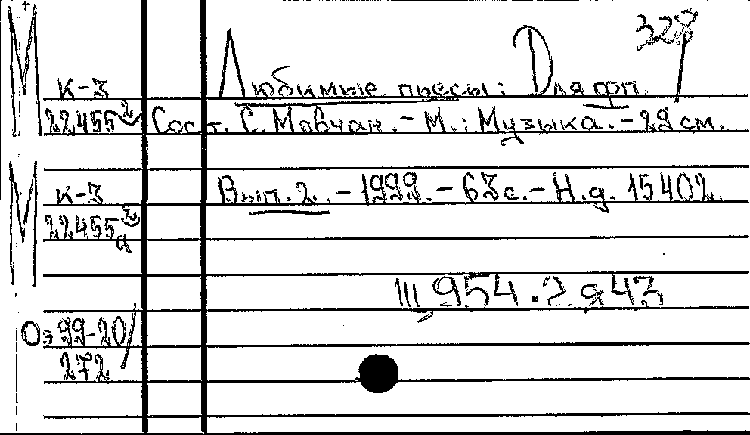 328
М Любимые пьесы: Для фп.
К-3
22455 2 Сост. С. Мовчан. - М.: Музыка. - 29 см.
М К-3 Вып. 2. - 1999. - 63 с. - Н.д. 15402
22455 2
а
Щ 954.2 я 43
Оз 99-20/
272